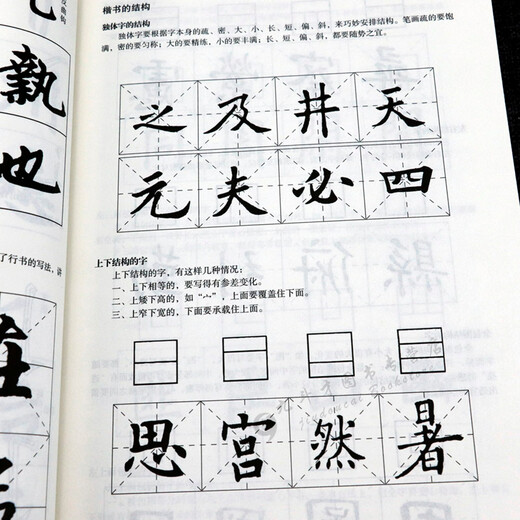 楷书的结构
独体字的结构
独体字要根据字本身的疏、密、大、小、长、短、偏、斜，来巧妙安排结构。笔画疏的要饱
满，密的要匀称；大的要精练，小的要丰满；长、短、偏、斜，都要随势之宜。
之及井天
元夫必四
上下结构的字
上下结构的字，有这样几种情况：
一、上下相等的，要写得有参差变化。
二、上矮下高的，如“宀”，上面要覆盖住下面。
三、上窄下宽的，下面要承载住上面。
思宫然暑
孰
也
了行书的写法，讲